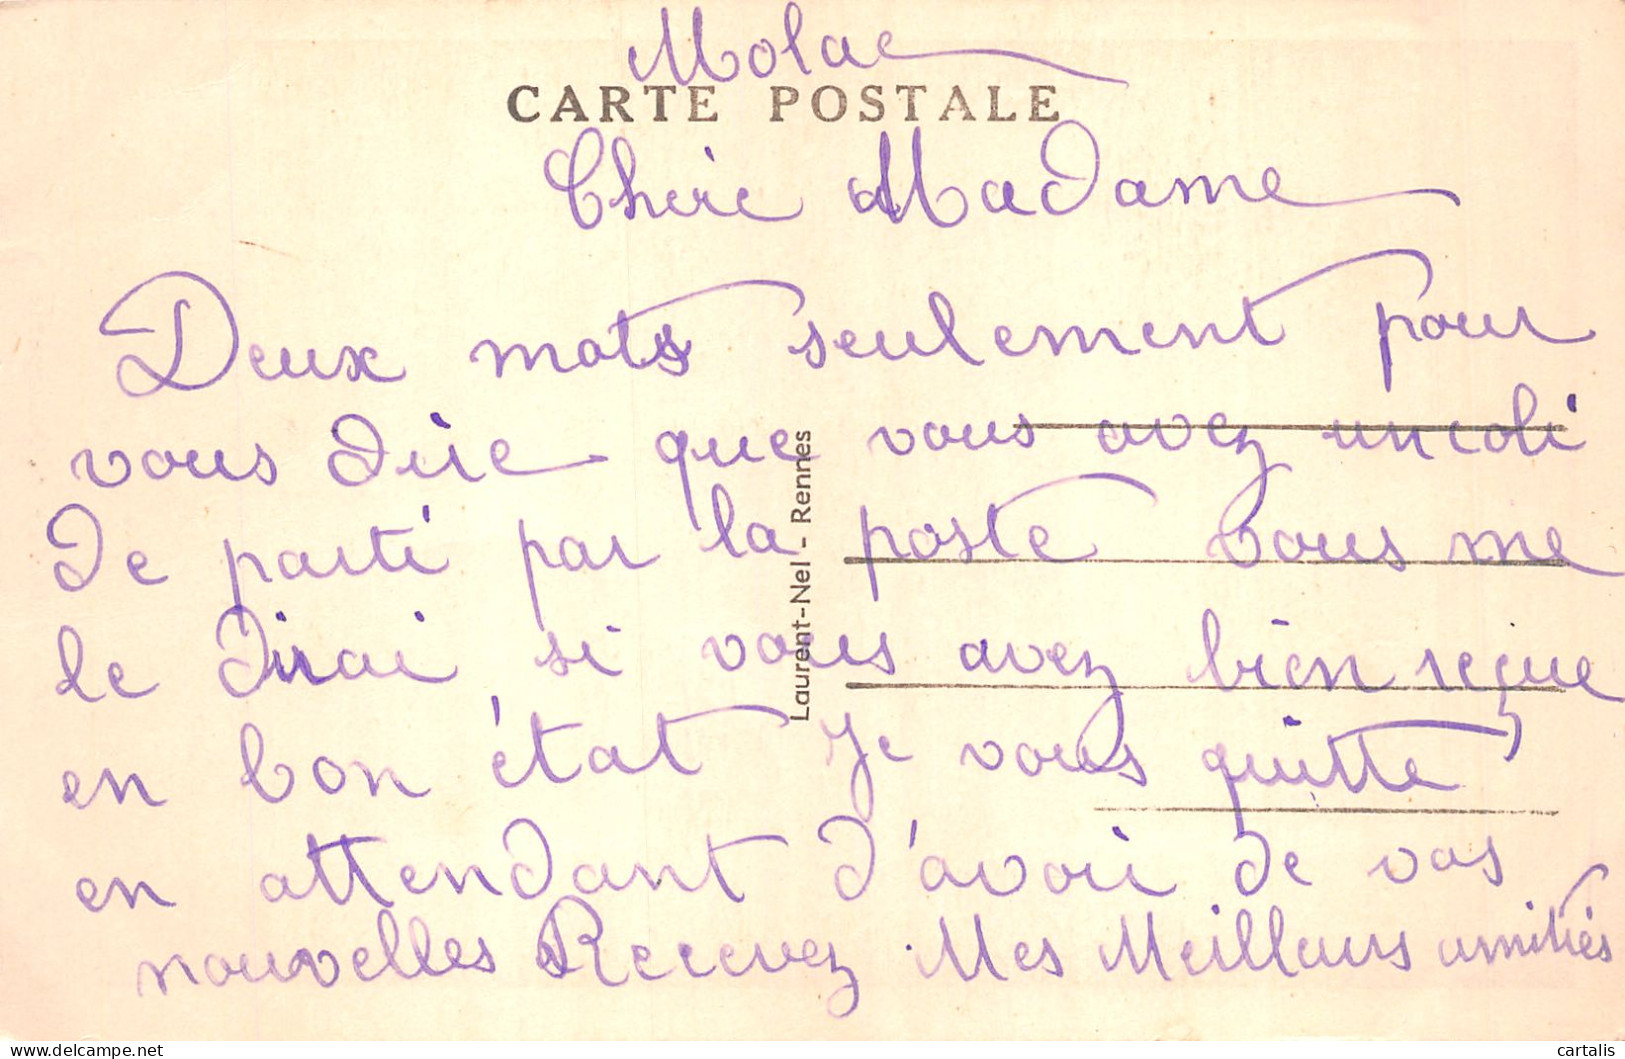 Molac
CARTE POSTALE
Chere Madame
Deux mots seulement pour
vous dire que vous avez un coli
de parti par la poste vous me
le dirai si vous avez bien reçue
en bon état Je vous quitte
en attendant d'avoir de vos
nouvelles Recevez Mes Meilleurs amitiés
Laurent-Nel - Rennes
delcampe.net
cartalis